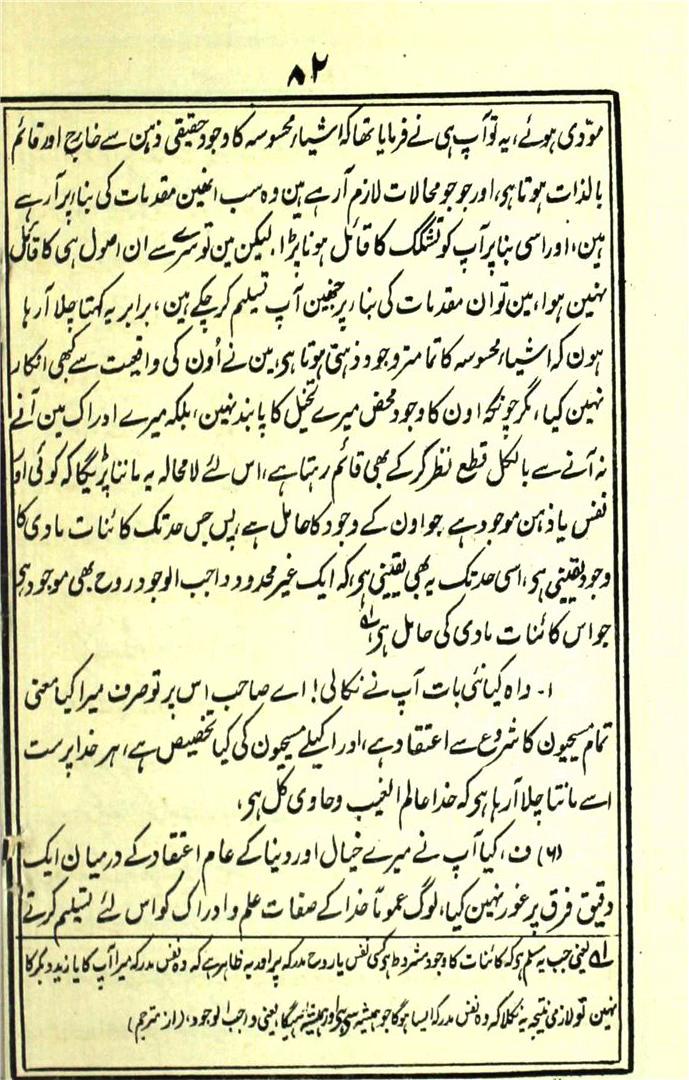 ۸۲
مودی ہوئے، یہ تو آپ ہی نے فرمایا تھا کہ اشیاء محسوسہ کا وجود حقیقی ذہن سے خارج اور قائم
بالذات ہوتا ہی، اور جو جو محالات لازم آرہے ہین وہ سب انھین مقدمات کی بناء پر آرہے
ہین، اور اسی بنا پر آپ کو تشکک کا قائل ہونا پڑا، لیکن مین تو سرے سے ان اصول ہی کا قائل
نہین ہوا، مین تو ان مقدمات کی بناء پر جنھین آپ تسلیم کر چکے ہین، برابر یہ کہتا چلا آرہا
ہون کہ اشیاء محسوسہ کا تمامتر وجود ذہنی ہوتا ہی، مین نے اُون کی واقعیت سے کبھی انکار
نہین کیا، مگر چونکہ اون کا وجود محض میرے تخیل کا پابند نہین، بلکہ میرے ادراک مین آنے
نہ آنے سے بالکل قطع نظر کرکے بھی قائم رہتا ہے، اس لئے لامحالہ یہ ماننا پڑیگا کہ کوئی اور
نفس یا ذہن موجود ہے جو اون کے وجود کا حامل ہے، پس جس حد تک کائنات مادی کا
وجود یقینی ہو، اسی حد تک یہ بھی یقینی ہو، کہ ایک غیر محدود واجب الوجود روح بھی موجود ہی
جو اس کائنات مادی کی حامل ہو، لہ
ا۔ واہ کیا نئی بات آپ نے نکالی! اے صاحب اس پر تو صرف میرا کیا معنی
تمام مسیحیون کا شروع سے اعتقاد ہے، اور اکیلے مسیحیون کی کیا تخصیص ہے، ہر خدا پرست
اسے مانتا چلا آرہا ہی کہ خدا عالم الغیب و حاوی کل ہی،
(۶) ف، کیا آپ نے میرے خیال اور دنیا کے عام اعتقاد کے درمیان ایک
دقیق فرق پر غور نہین کیا، لوگ عموماً خدا کے صفات علم و ادراک کو اس لئے تسلیم کرتے
لہ یعنی جب یہ مسلم ہو کہ کائنات کا وجود مشروط ہو کسی نفس یا روح مدرکہ پر اور یہ ظاہر ہے کہ وہ نفس مدرکہ میرا آپ کا یا زید و بکر کا
نہین تو لازمی نتیجہ یہ نکلا کہ وہ نفس مدرکہ ایسا ہوگا جو ہمیشہ سے ہی اور ہمیشہ رہیگا، یعنی واجب الوجود، (از مترجم)